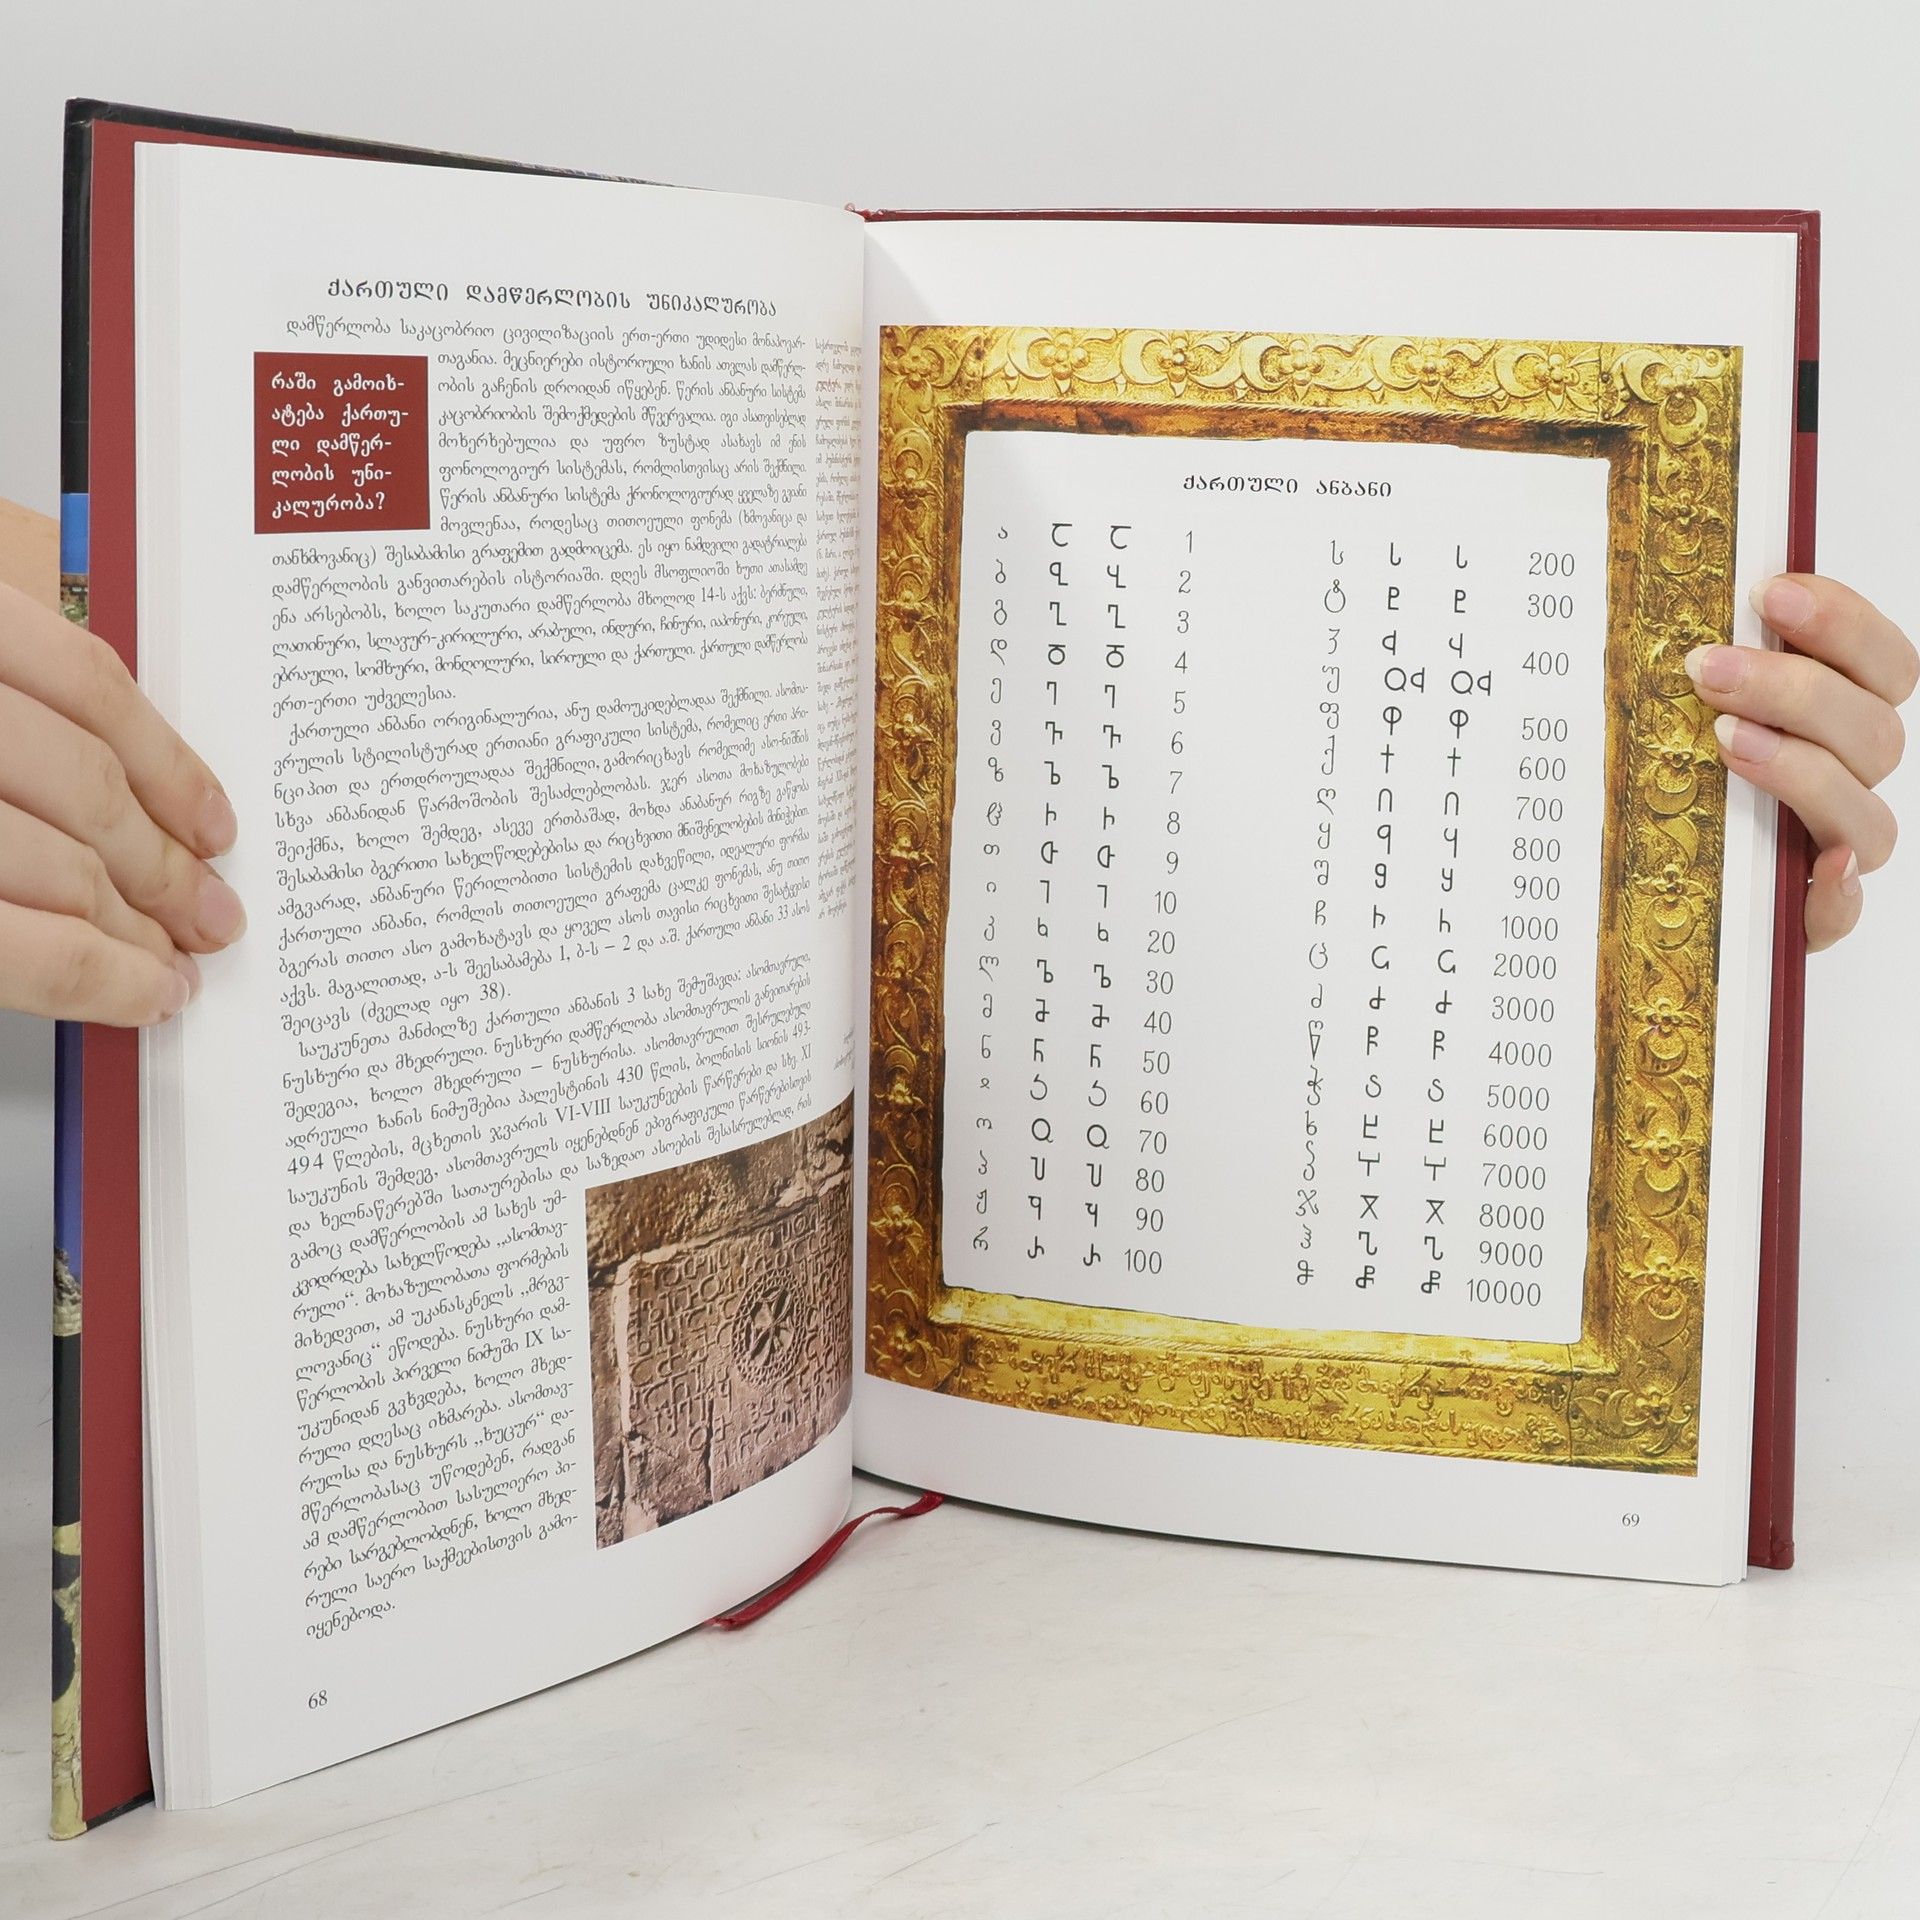 ქართული დამწერლობის უნიკალურობა
დამწერლობა საკაცობრიო ცივილიზაციის ერთ-ერთი უდიდესი მონაპოვარ-
თაგანია. მეცნიერები ისტორიული ხანის ათვლას დამწერლ-
ობის გაჩენის დროიდან იწყებენ. წერის ანბანური სისტემა
კაცობრიობის შემოქმედების მწვერვალია. იგი ასათვისებლად
მოხერხებულია და უფრო ზუსტად ასახავს იმ ენის
ფონოლოგიურ სისტემას, რომლისთვისაც არის შექმნილი.
წერის ანბანური სისტემა ქრონოლოგიურად ყველაზე გვიანი
მოვლენაა, როდესაც თითოეული ფონემა (ხმოვანიცა და
რაში გამოიხ-
ატება ქართუ-
ლი დამწერ-
ლობის უნი-
კალურობა?
თანხმოვანიც) შესაბამისი გრაფემით გადმოიცემა. ეს იყო ნამდვილი გადატრიალება
დამწერლობის განვითარების ისტორიაში. დღეს მსოფლიოში ხუთი ათასამდე
ენა არსებობს, ხოლო საკუთარი დამწერლობა მხოლოდ 14-ს აქვს: ბერძნული,
ლათინური, სლავურ-კირილური, არაბული, ინდური, ჩინური, იაპონური, კორეული,
ებრაული, სომხური, მონღოლური, სირიული და ქართული. ქართული დამწერლობა
ერთ-ერთი უძველესია.
ქართული ანბანი ორიგინალურია, ანუ დამოუკიდებლადაა შექმნილი. ასომთა-
ვრულის სტილისტურად ერთიანი გრაფიკული სისტემა, რომელიც ერთი პრი-
ნციპით და ერთდროულადაა შექმნილი, გამორიცხავს რომელიმე ასო-ნიშნის
სხვა ანბანიდან წარმოშობის შესაძლებლობას. ჯერ ასოთა მოხაზულობები
შეიქმნა, ხოლო შემდეგ, ასევე ერთბაშად, მოხდა ანაბანურ რიგზე გაწყობა
შესაბამისი ბგერითი სახელწოდებებისა და რიცხვითი მნიშვნელობების მინიჭებით.
ამგვარად, ანბანური წერილობითი სისტემის დახვეწილი, იდეალური ფორმაა
ქართული ანბანი, რომლის თითოეული გრაფემა ცალკე ფონემას, ანუ თითო
ბგერას თითო ასო გამოხატავს და ყოველ ასოს თავისი რიცხვითი შესატყვისი
აქვს. მაგალითად, ა-ს შეესაბამება 1, ბ-ს – 2 და ა.შ. ქართული ანბანი 33 ასოს
შეიცავს (ძველად იყო 38).
საუკუნეთა მანძილზე ქართული ანბანის 3 სახე შემუშავდა: ასომთავრული,
ნუსხური და მხედრული. ნუსხური დამწერლობა ასომთავრულის განვითარების
შედეგია, ხოლო მხედრული – ნუსხურისა. ასომთავრულით შესრულებული
ადრეული ხანის ნიმუშებია პალესტინის 430 წლის, ბოლნისის სიონის 493-
494 წლების, მცხეთის ჯვარის VI-VIII საუკუნეების წარწერები და სხვ. XI
საუკუნის შემდეგ, ასომთავრულს იყენებდნენ ეპიგრაფიკული წარწერებისთვის
და ხელნაწერებში სათაურებისა და საზედაო ასოების შესასრულებლად, რის
გამოც დამწერლობის ამ სახეს უმ-
კვიდრდება სახელწოდება „ასომთავ-
რული“. მოხაზულობათა ფორმების
მიხედვით, ამ უკანასკნელს „მრგვ-
ლოვანიც“ ეწოდება. ნუსხური დამ-
წერლობის პირველი ნიმუში IX სა-
უკუნიდან გვხვდება, ხოლო მხედ-
რული დღესაც იხმარება. ასომთავ-
რულსა და ნუსხურს „ხუცურ“ და-
მწერლობასაც უწოდებენ, რადგან
ამ დამწერლობით სასულიერო პი-
რები სარგებლობდნენ, ხოლო მხედ-
რული საერო საქმეებისთვის გამო-
იყენებოდა.
68
ქართული ანბანი
ა Ⴀ Ⴀ 1
ბ Ⴁ Ⴁ 2
გ Ⴂ Ⴂ 3
დ Ⴃ Ⴃ 4
ე Ⴄ Ⴄ 5
ვ Ⴅ Ⴅ 6
ზ Ⴆ Ⴆ 7
ჱ Ⴡ Ⴡ 8
თ Ⴇ Ⴇ 9
ი Ⴈ Ⴈ 10
კ Ⴉ Ⴉ 20
ლ Ⴊ Ⴊ 30
მ Ⴋ Ⴋ 40
ნ Ⴌ Ⴌ 50
ჲ Ⴢ Ⴢ 60
ო Ⴍ Ⴍ 70
პ Ⴎ Ⴎ 80
ჟ Ⴏ Ⴏ 90
რ Ⴐ Ⴐ 100
ს Ⴑ Ⴑ 200
ტ Ⴒ Ⴒ 300
ჳ Ⴣ Ⴣ 400
უ ႭႣ ႭႣ
ფ Ⴔ Ⴔ 500
ქ Ⴕ Ⴕ 600
ღ Ⴖ Ⴖ 700
ყ Ⴗ Ⴗ 800
შ Ⴘ Ⴘ 900
ჩ Ⴙ Ⴙ 1000
ც Ⴚ Ⴚ 2000
ძ Ⴛ Ⴛ 3000
წ Ⴜ Ⴜ 4000
ჭ Ⴝ Ⴝ 5000
ხ Ⴞ Ⴞ 6000
ჴ Ⴤ Ⴤ 7000
ჯ Ⴟ Ⴟ 8000
ჰ Ⴠ Ⴠ 9000
ჵ Ⴥ Ⴥ 10000
69